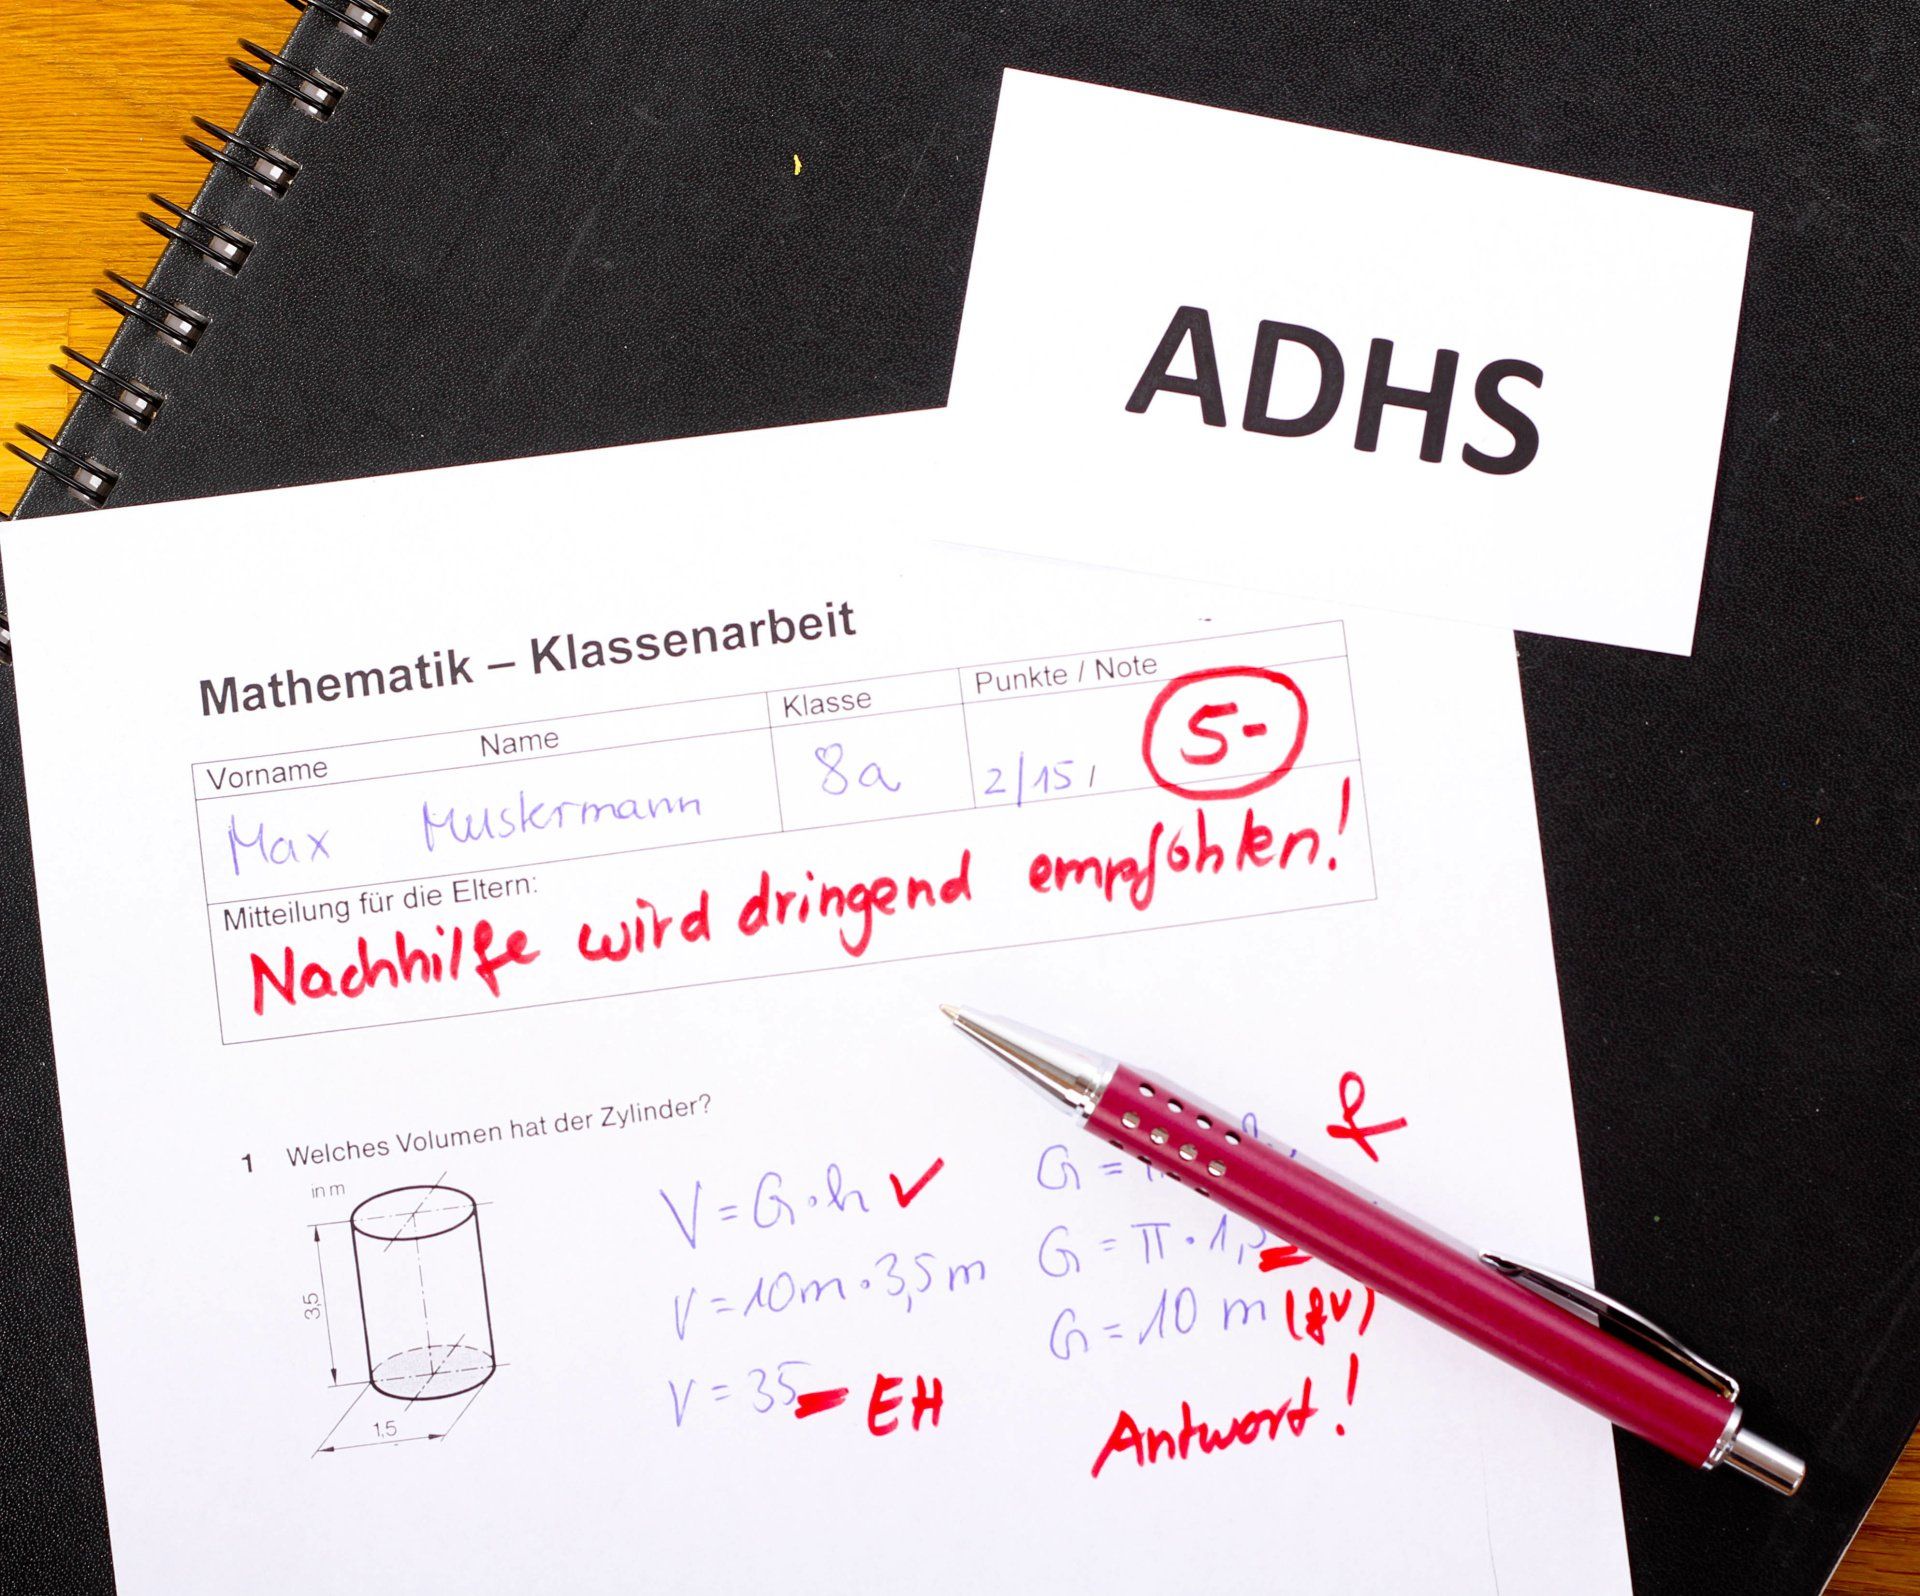 ADHS
Mathematik – Klassenarbeit
Vorname Name Klasse Punkte / Note
Max Mustermann 8a 2/15, 5-
Mitteilung für die Eltern:
Nachhilfe wird dringend empfohlen!
1 Welches Volumen hat der Zylinder?
in m
3,5
1,5
V = G·h ✓
V = 10m·3,5m
V = 35 EH
G =
G = π·1,5
G = 10 m (fV)
Antwort!